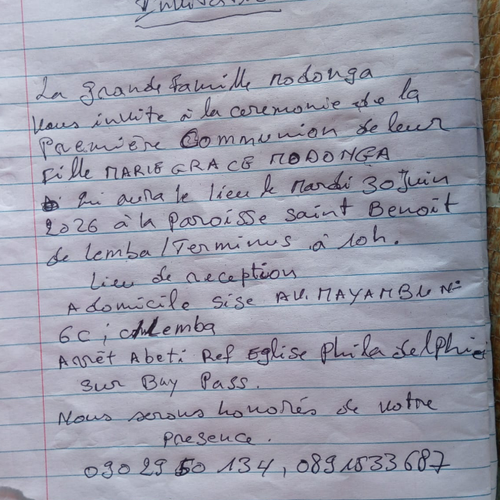 Invitation
La grande Famille Modonga
Vous invite à la ceremonie de la
Première Communion de leur
Fille MARIE GRACE MODONGA
qui aura le lieu le Mardi 30 Juin
2026 à la Paroisse Saint Benoit
de lemba/Terminus à 10h.
Lieu de reception
A domicile sise AV. MAYAMBU N°
6C; c/Lemba
Arrêt Abeti Ref Eglise Philadelphie
sur Bay Pass.
Nous serons honorés de votre
presence.
090 29 50 134, 0891533687